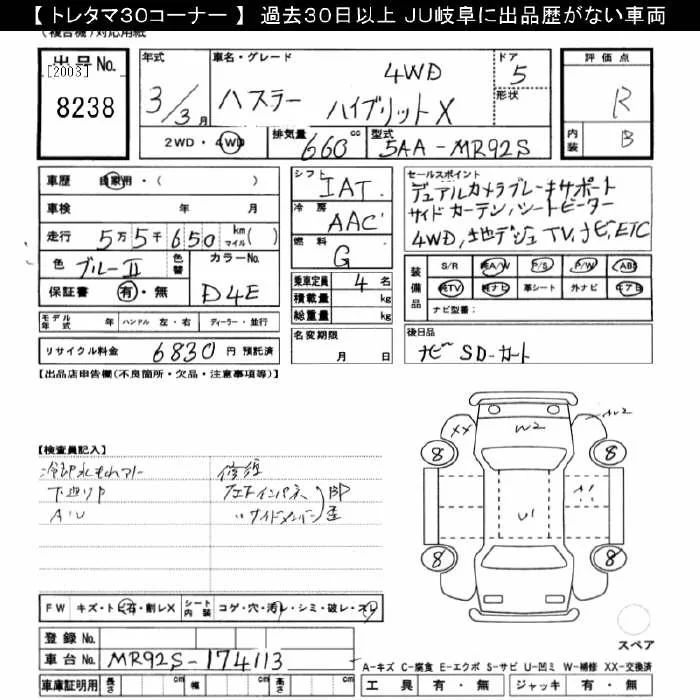 【 トレタマ30コーナー 】 過去30日以上 JU岐阜に出品歴がない車両
(複合機)対応用紙
出品No.
[2003]
8238
年式
3/3月
車名・グレード
4WD
ハスラー ハイブリットX
ドア
5
形状
評価点
R
内装
B
2WD・4WD
排気量
660cc
型式
5AA-MR92S
車歴 自家用・( )
車検 年 月
走行 5万5千650 km マイル( )
色 ブルーII 色替
カラーNo.
D4E
保証書 有・無
シフト
IAT
冷房
AAC
燃料
G
乗車定員 4名
積載量 kg
総重量 kg
セールスポイント
デュアルカメラブレーキサポート
サイドカーテン/シートヒーター
4WD,地デジTV,ナビ,ETC
装備品
S/R 純A/W P/S P/W ABS
純TV 純ナビ 革シート 外ナビ エアB
ナビ型番:
モデル年式 年 ハンドル 左・右 ディーラー・並行
名変期限
月 日
後日品
ナビSD-カート
リサイクル料金 6830 円 預託済
【出品店申告欄(不良箇所・欠品・注意事項等)】
【検査員記入】
冷却水もれアリ
下廻りP
修復
XX
W2
AU2
8
8
A1
U1
8
8
FW キズ・トビ石・割レX
シート内装 コゲ・穴・汚レ・シミ・破レ・スレ
スペア
登録No.
車台No. MR92S-174113
A-キズ C-腐食 E-エクボ S-サビ U-凹ミ W-補修 XX-交換済
車庫証明用 長さ cm 幅 cm 高さ cm
工具 有・無 ジャッキ 有・無